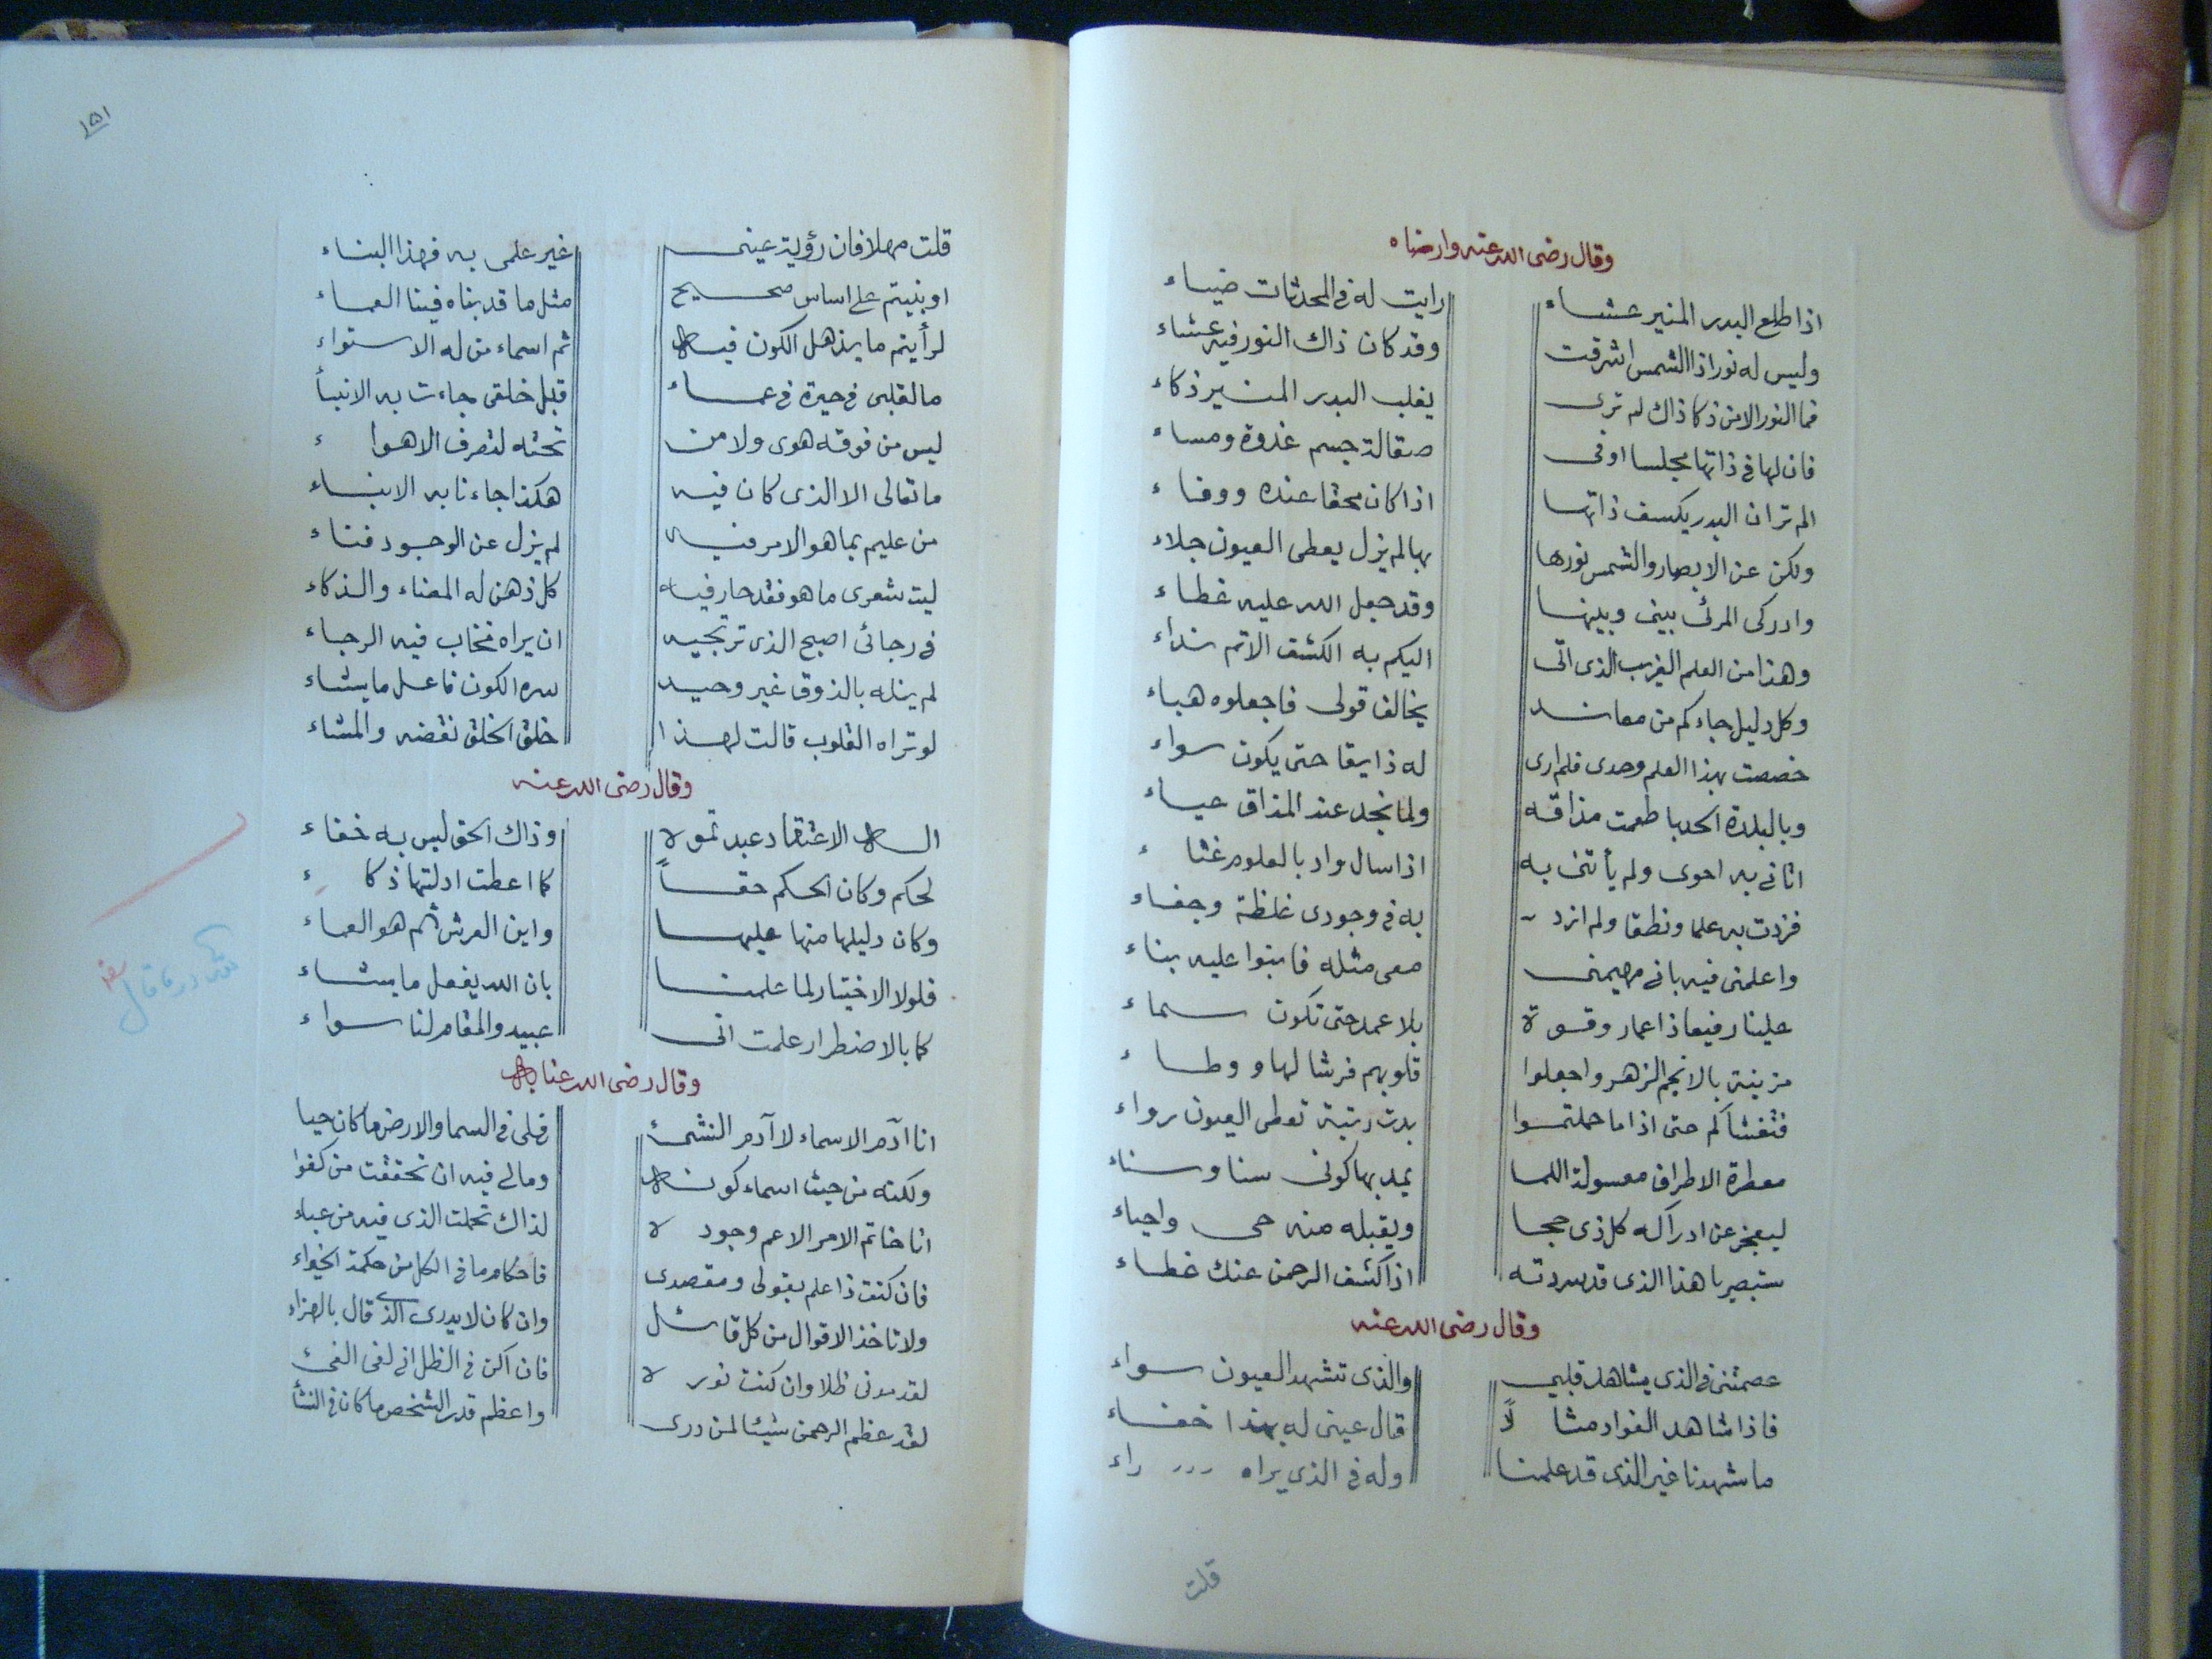 وقال رضى الله عنه وارضاه
اذا طلع البدر المنير عشاء رايت له فى المحدثات ضياء
وليس له نور اذا الشمس اشرقت وقد كان ذاك النور فيه عشاء
فما النور الا من ذكا ذاك لم ترى يغلب البدر المنير ذكاء
فان لها فى ذاتها مجلسا اوفى صقالة جسم غدوة ومساء
الم تر ان البدر يكسف ذاتها اذا كان محقا عنده ووفاء
ولكن عن الابصار والشمس نورها بها لم يزل يعطى العيون جلاء
وادركى المرئ بينى وبينها وقد جعل الله عليه غطاء
وهذا من العلم الغريب الذى اتى اليكم به الكشف الاتم نداء
وكل دليل جاءكم من معاند يخالف قولى فاجعلوه هباء
خصصت بهذا العلم وحدى فلم ارى له ذايقا حتى يكون سواء
وبالبلدة الحدبا طعمت مذاقه ولما نجد عند المذاق حياء
اتانى به احوى ولم يأتنى به اذا سال واد بالعلوم غثاء
فزدت به علما ونطقا ولم ازد به فى وجودى غلظة وجفاء
واعلمنى فيه بانى مهيمنى معى مثله فابنوا عليه بناء
علينا رفيعا ذا عماد وقوة بلا عمد حتى تكون سماء
مزينة بالانجم الزهر واجعلوا قلوبهم فرشا لها ووطاء
فتغشاكم حتى اذا ما حملتموا بدت رتبة تعطى العيون رواء
معطرة الاطراف معسولة اللما يمد بها كونى سنا وسناء
ليعجز عن ادراكه كل ذى حجا ويقبله منه حى واحياء
ستبصر يا هذا الذى قد سردته اذا كشف الرحمن عنك غطاء
وقال رضى الله عنه
عصمتنى فى الذى يشاهد قلبي والذى تشهد العيون سواء
فاذا شاهد الفواد مثالا قال عينى له بهذا خفاء
ما شهدنا غير الذى قد علمنا وله فى الذى يراه راء
قلت
١٥١
قلت مهلا فان رؤية عينى غير علمى به فهذا البناء
او بنيتم على اساس صحيح مثل ما قد بناه فينا العماء
لرأيتم ما يذهل الكون فيه ثم اسماء من له الاستواء
ما لقلبى فى حيرة فى عماء قبل خلقى جاءت به الانبأ
ليس من فوقه هوى ولا من تحته لتصرف الاهواء
ما تعالى الا الذى كان فيه هكذا جاءنا به الانبياء
من عليم بما هو الامر فيه لم يزل عن الوجود فناء
ليت شعرى ما هو فقد حار فيه كل ذهن له المضاء والذكاء
فى رجائى اصبح الذى ترتجيه ان يراه فخاب فيه الرجاء
لم ينله بالذوق غير وحيد لسره الكون فاعل ما يشاء
لو تراه القلوب قالت لهذا خلق الخلق نقضه والمشاء
وقال رضى الله عنه
اله الاعتقاد عبد تموه وذاك الحق ليس به خفاء
لحكم وكان الحكم حقاً كما اعطت ادلتها ذكاء
وكان دليلها منها عليها واين العرش ثم هو العماء
فلولا الاختيار لما علمنا بان الله يفعل ما يشاء
كما بالاضطرار علمت انى عبيد والمقام لنا سواء
وقال رضى الله عنا به
انا آدم الاسماء لا آدم النشئ فلى فى السما والارض ما كان حيا
ولكنه من حيث اسماء كونه ومالى فيه ان تحققت من كفوا
انا خاتم الامر الاعم وجوده لذاك تحملت الذى فيه من عباء
فان كنت ذا علم بقولى ومقصدى فاحكام ما فى الكل من حكمة
ولا تاخذ الاقوال من كل قائل وان كان لا يدرى الذى قال بالهزاء
لقد مدنى ظلا وان كنت نوره فان اكن فى الظل انى لفى الفئ
لقد عظم الرحمن شيئا لمن درى واعظم قدر الشخص ما كان فى النشأ